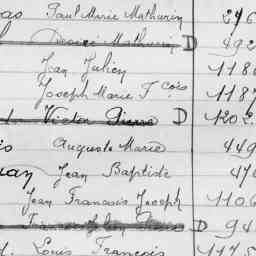 as Paul Marie Mathurin 276
Desiré Mathurin D 992
Jean Julien 1186
Joseph Marie Fcois 1187
Victor Pierre D 1202
is Auguste Marie 449
uay Jean Baptiste 476
Jean Francois Joseph 1106
D 94
Louis Francois 1175